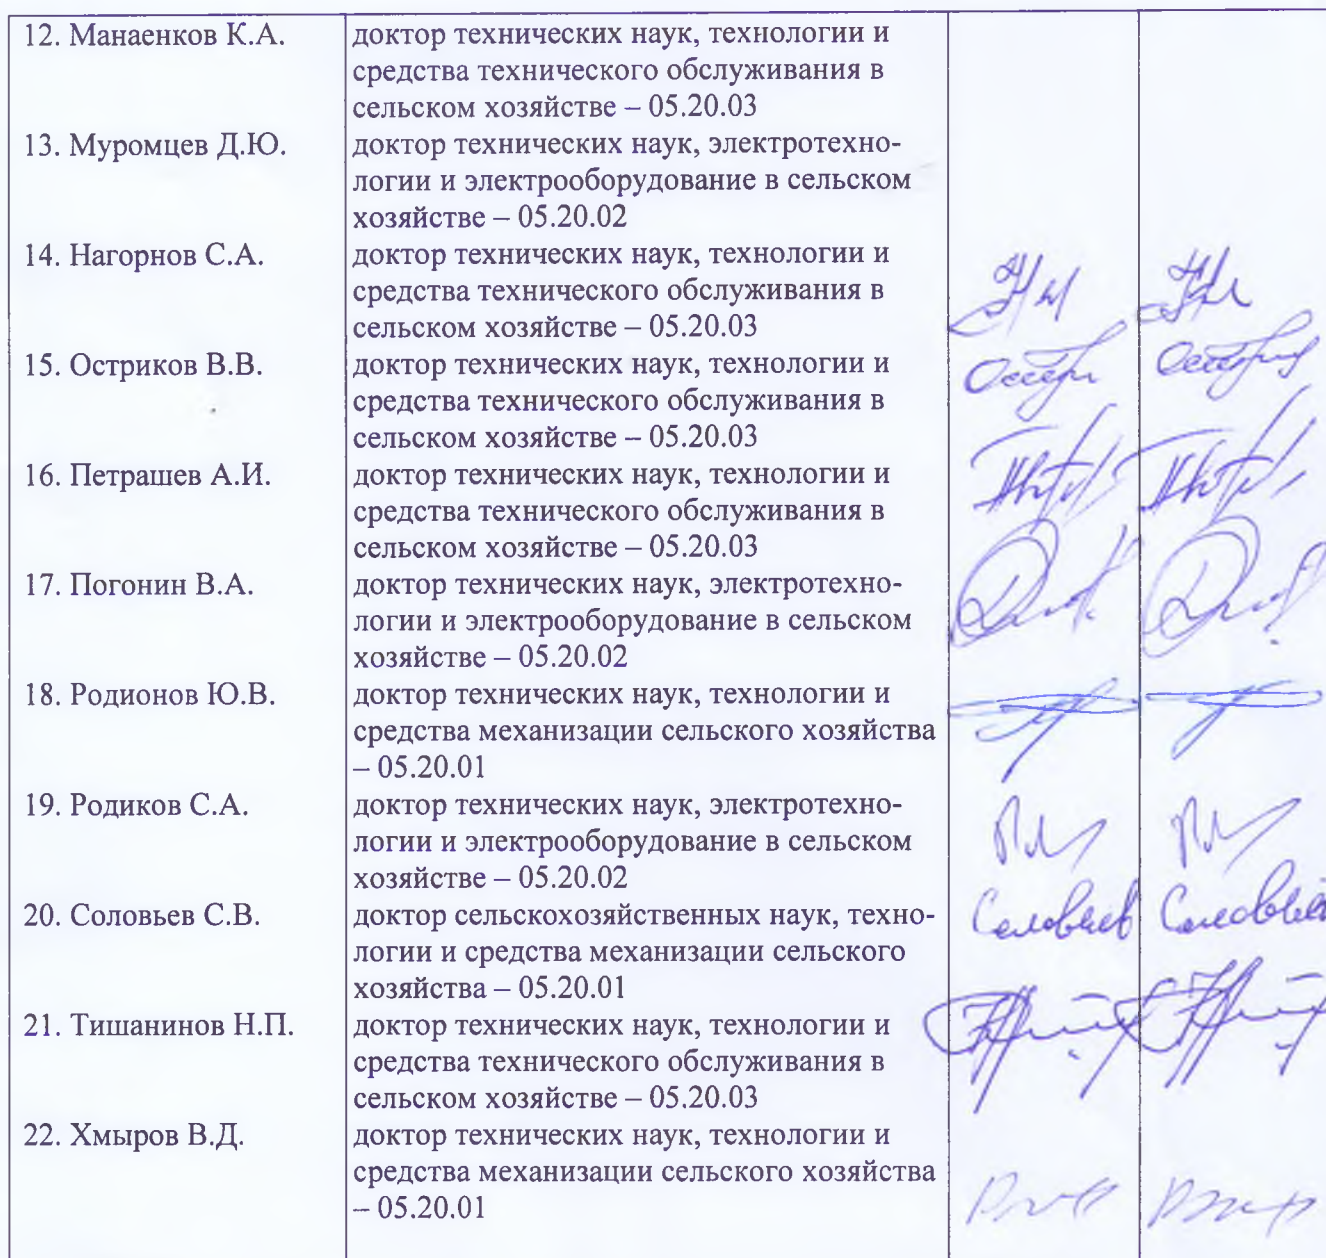 12. Манаенков К.А.
доктор технических наук, технологии и
средства технического обслуживания в
сельском хозяйстве – 05.20.03
13. Муромцев Д.Ю.
доктор технических наук, электротехно-
логии и электрооборудование в сельском
хозяйстве – 05.20.02
14. Нагорнов С.А.
доктор технических наук, технологии и
средства технического обслуживания в
сельском хозяйстве – 05.20.03
15. Остриков В.В.
доктор технических наук, технологии и
средства технического обслуживания в
сельском хозяйстве – 05.20.03
16. Петрашев А.И.
доктор технических наук, технологии и
средства технического обслуживания в
сельском хозяйстве – 05.20.03
17. Погонин В.А.
доктор технических наук, электротехно-
логии и электрооборудование в сельском
хозяйстве – 05.20.02
18. Родионов Ю.В.
доктор технических наук, технологии и
средства механизации сельского хозяйства
– 05.20.01
19. Родиков С.А.
доктор технических наук, электротехно-
логии и электрооборудование в сельском
хозяйстве – 05.20.02
20. Соловьев С.В.
доктор сельскохозяйственных наук, техно-
логии и средства механизации сельского
хозяйства – 05.20.01
Соловьев Соловьев
21. Тишанинов Н.П.
доктор технических наук, технологии и
средства технического обслуживания в
сельском хозяйстве – 05.20.03
22. Хмыров В.Д.
доктор технических наук, технологии и
средства механизации сельского хозяйства
– 05.20.01